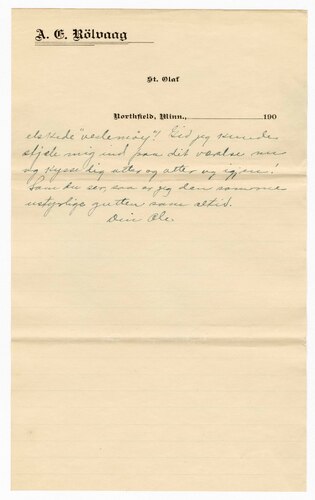 A. E. Rölvaag
St. Olaf
Northfield, Minn., 190
elskede "veslemøy"! Gid jeg kunde
stjele mig ind paa dit værelse nu
og kysse dig atter og atter og igjen!
Som du ser, saa er jeg den samme
ustyrlige gutten som altid.
Din Ole.